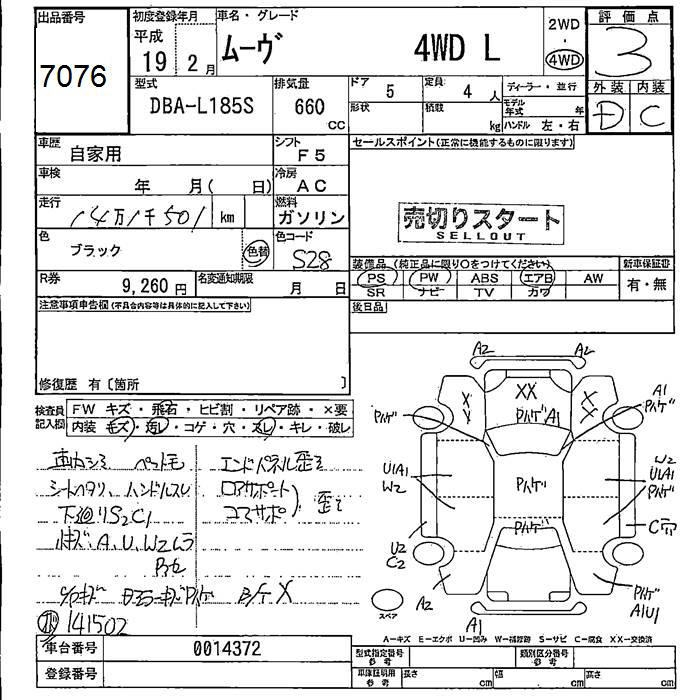 出品番号
7076
初度登録年月
平成
19 2月
車名・グレード
ムーヴ 4WD L
2WD
・
4WD
評価点
3
型式
DBA-L185S
排気量
660
CC
ドア
5
定員
4 人
形状
積数
kg
ディーラー・並行
モデル年式 年
ハンドル 左・右
外装 内装
D C
車歴
自家用
シフト
F5
車検
年 月( 日)
冷房
AC
走行
14万1千501 km
燃料
ガソリン
色
ブラック
色替
色コード
S28
R券
9,260 円
名変通知期限
月 日
セールスポイント(正常に機能するものに限ります)
売切りスタート
SELLOUT
装備品(純正品に限り○をつけてください)
新車保証書
PS PW ABS エアB AW
SR ナビ TV カワ
有・無
後日品
注意事項申告欄(不具合内容等は具体的に記入して下さい)
修復歴 有〔箇所 〕
検査員記入欄
FW キズ・飛石・ヒビ割・リペア跡・×要
内装 キズ・汚レ・コゲ・穴・スレ・キレ・破レ
エンドパネル歪ミ
シートヘタリ、ハンドルスレ
ロアサポート
歪ミ
下廻りS2C1
コアサポ
小キズ、A、U、W2ムラ
141502
A2 A2
XX
X X
X X
A1
Pハゲ
Pハゲ
Pハゲ A1
U1A1
W2
Pハゲ
W2
U1A1
Pハゲ
Pハゲ
U2
C2
A2
A1
Pハゲ
A1U1
スペア
A-キズ E-エクボ U-凹み W-補修跡 S-サビ C-腐食 XX-交換済
車台番号
0014372
登録番号
型式指定番号
参考
類別区分番号
参考
車庫証明用
参考
長さ cm 幅 cm 高さ cm